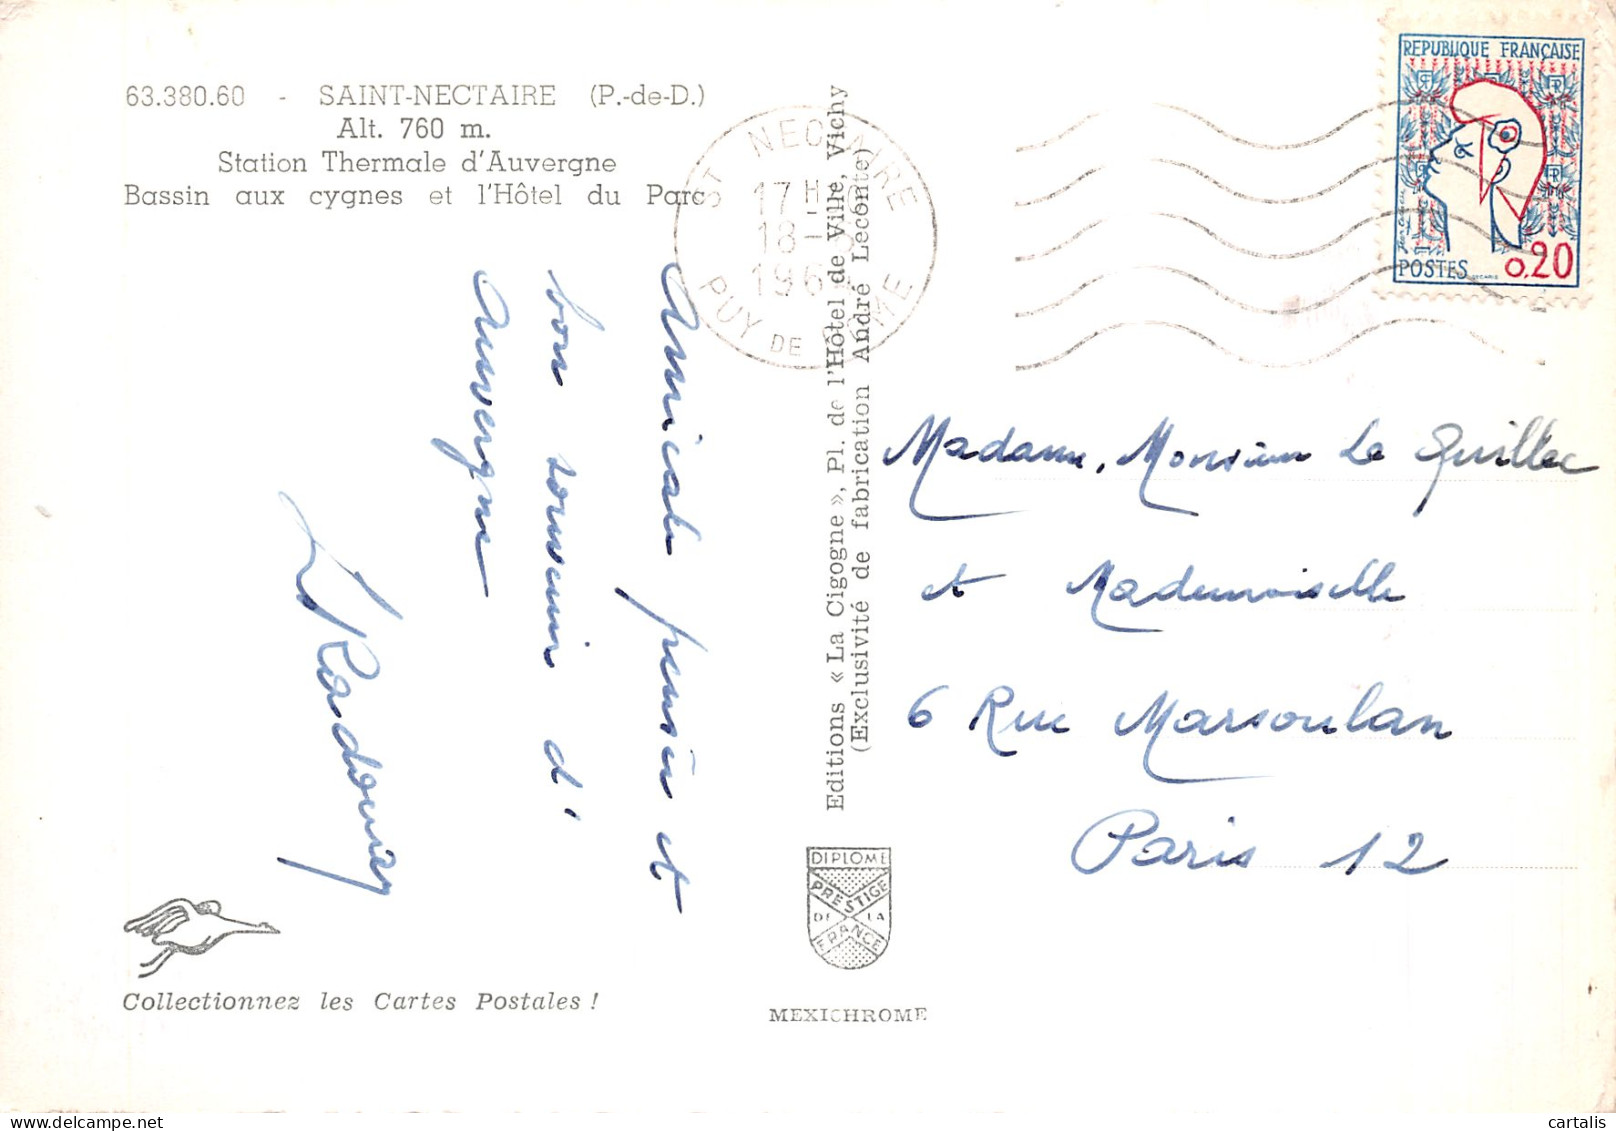 63.380.60 - SAINT-NECTAIRE (P.-de-D.)
Alt. 760 m.
Station Thermale d'Auvergne
Bassin aux cygnes et l'Hôtel du Parc
Amicale pensée et
bon souvenir d'
Auvergne
Collectionnez les Cartes Postales !
Editions « La Cigogne », Pl. de l'Hôtel de Ville, Vichy
(Exclusivité de fabrication André Leconte)
DIPLOME
PRESTIGE
DE LA
FRANCE
MEXICHROME
ST NECTAIRE
17 H
18 -
196
PUY DE DOME
REPUBLIQUE FRANÇAISE
POSTES 0,20
Madame, Monsieur Le Quillec
et Mademoiselle
6 Rue Marsoulan
Paris 12
cartalis